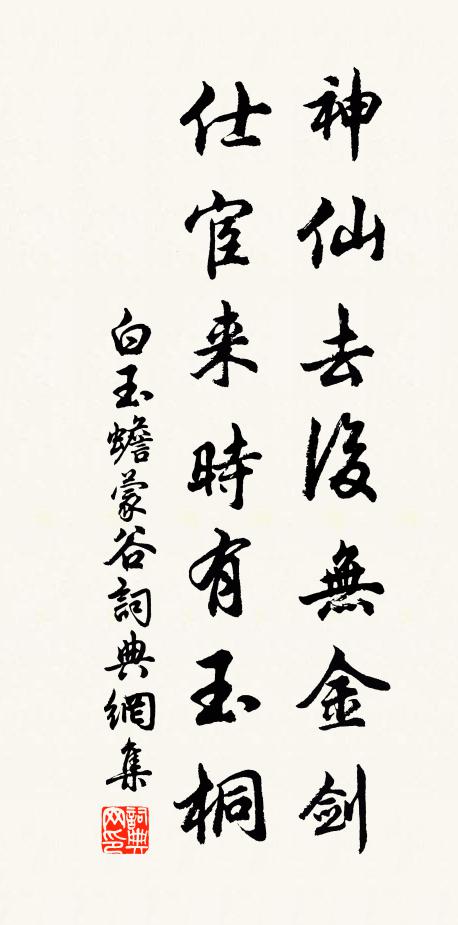 神仙去後無金剑
仕宦来時有玉桐
白玉蟾蒙谷詞典網集
詞典网印